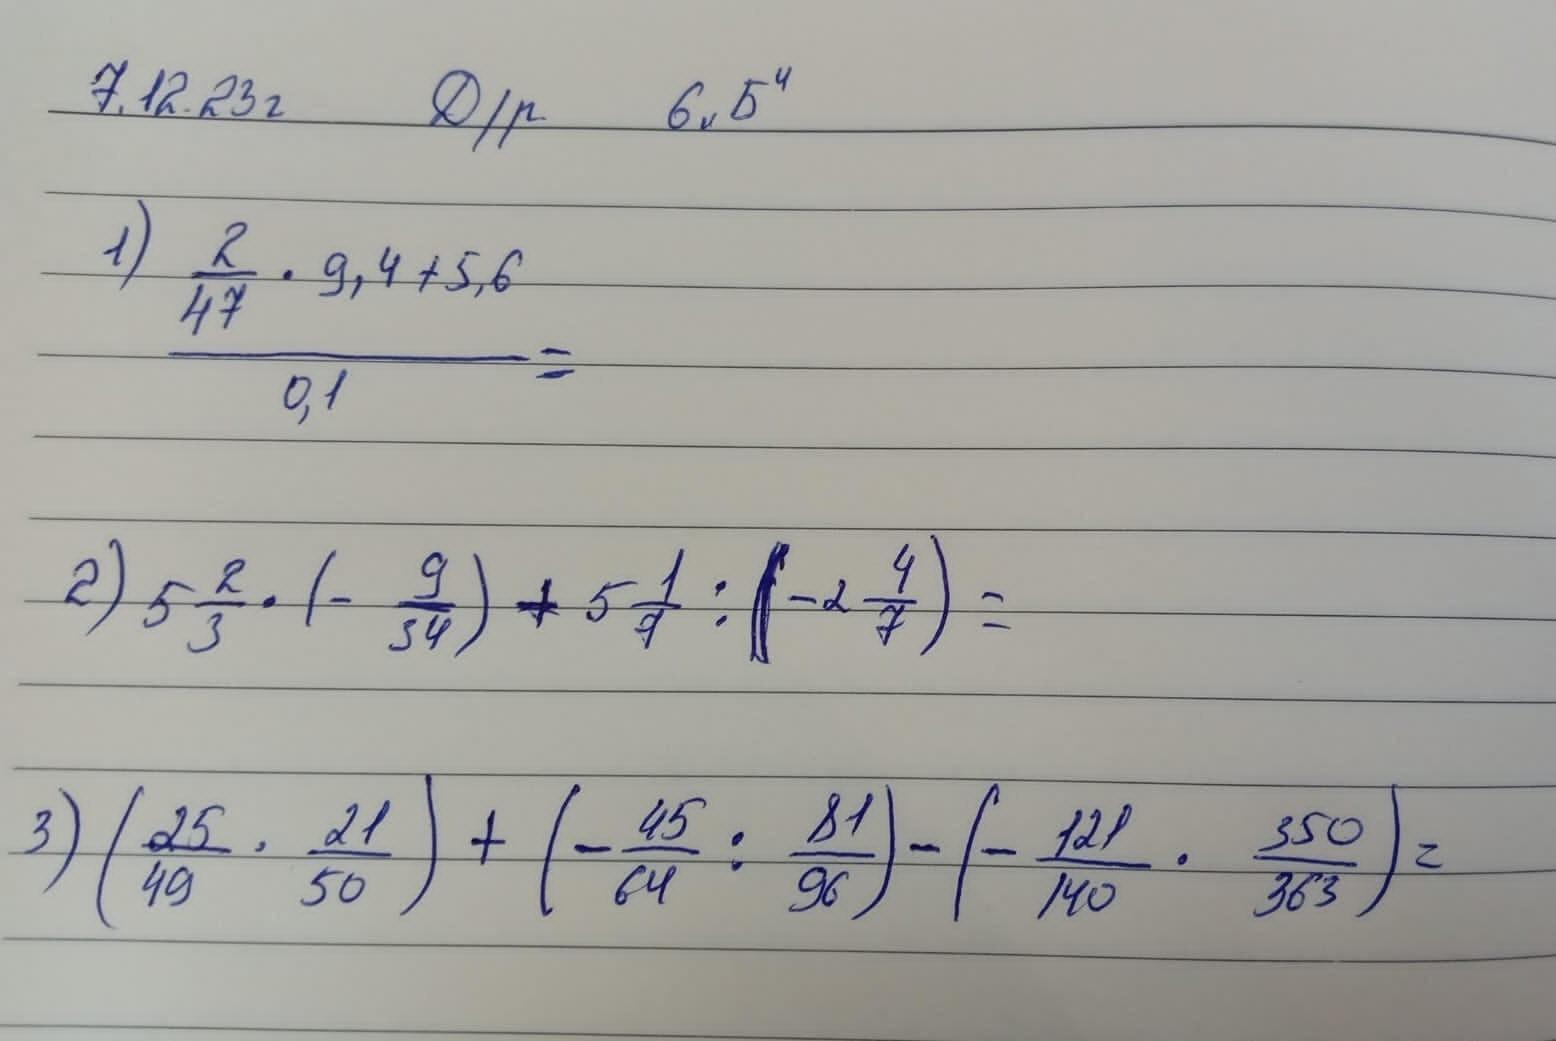 7.12.23г Д/р 6 "Б"
1) (2/47 · 9,4+5,6)/0,1 =
2) 5 2/3 · (- 9/34) + 5 1/7 : (-2 4/7) =
3) (25/49 · 21/50) + (- 45/64 : 81/96) - (- 121/140 · 350/363) =